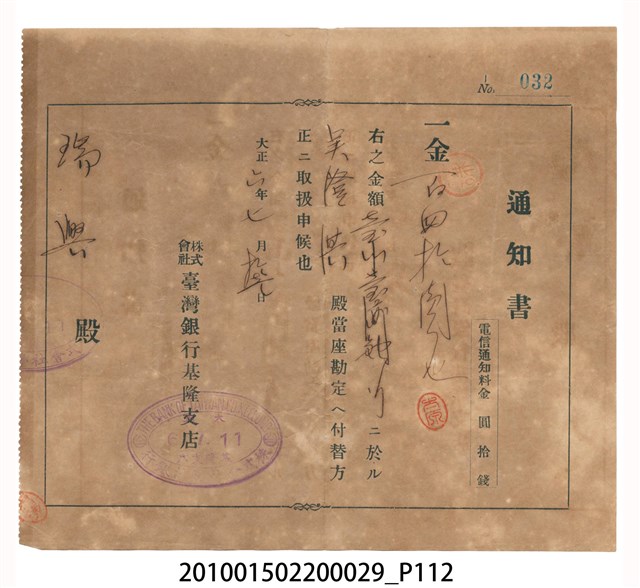 No. 032
通知書
電信通知料金 圓拾錢
一金 百四拾圓也
右之金額 ニ於ル
吳隆 殿當座勘定ヘ付替方
正ニ取扱申候也
大正六年七月 日
株式會社 臺灣銀行基隆支店
瑞興 殿
11
201001502200029_P112